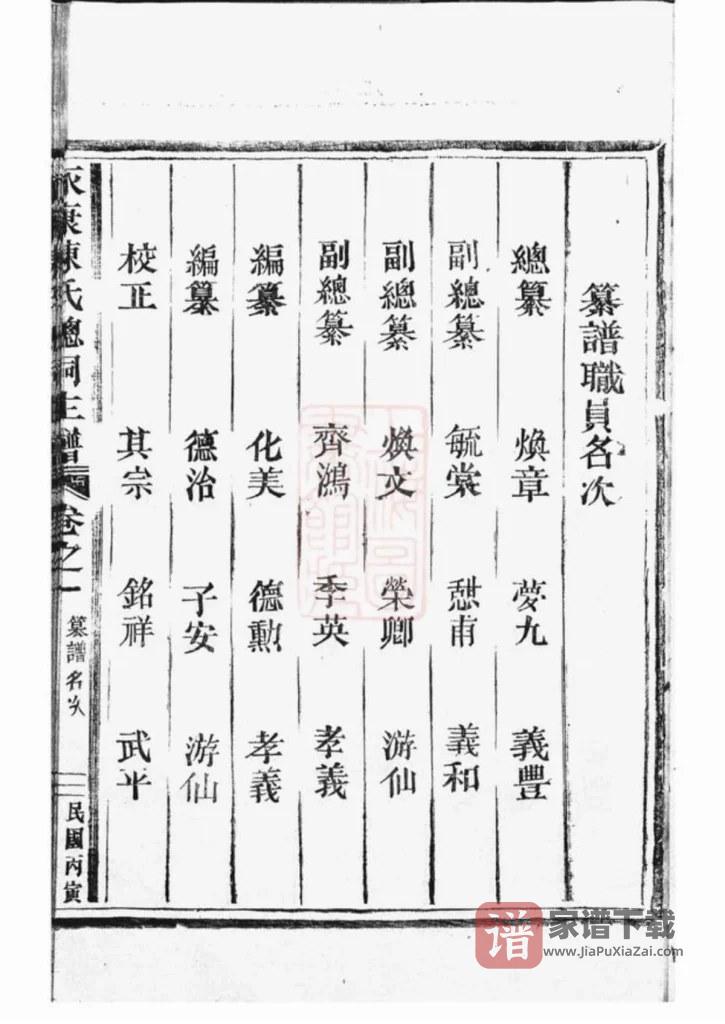 纂譜職員名次
總纂 煥章 夢九 義豐
副總纂 毓棠 憇甫 義和
副總纂 煥文 榮卿 游仙
副總纂 齊鴻 季英 孝義
編纂 化美 德勳 孝義
編纂 德治 子安 游仙
校正 其宗 銘祥 武平
永康陳氏總祠主譜 卷之一 纂譜名次 二 民國丙寅
谱 家谱下载
www.JiaPuXiaZai.com